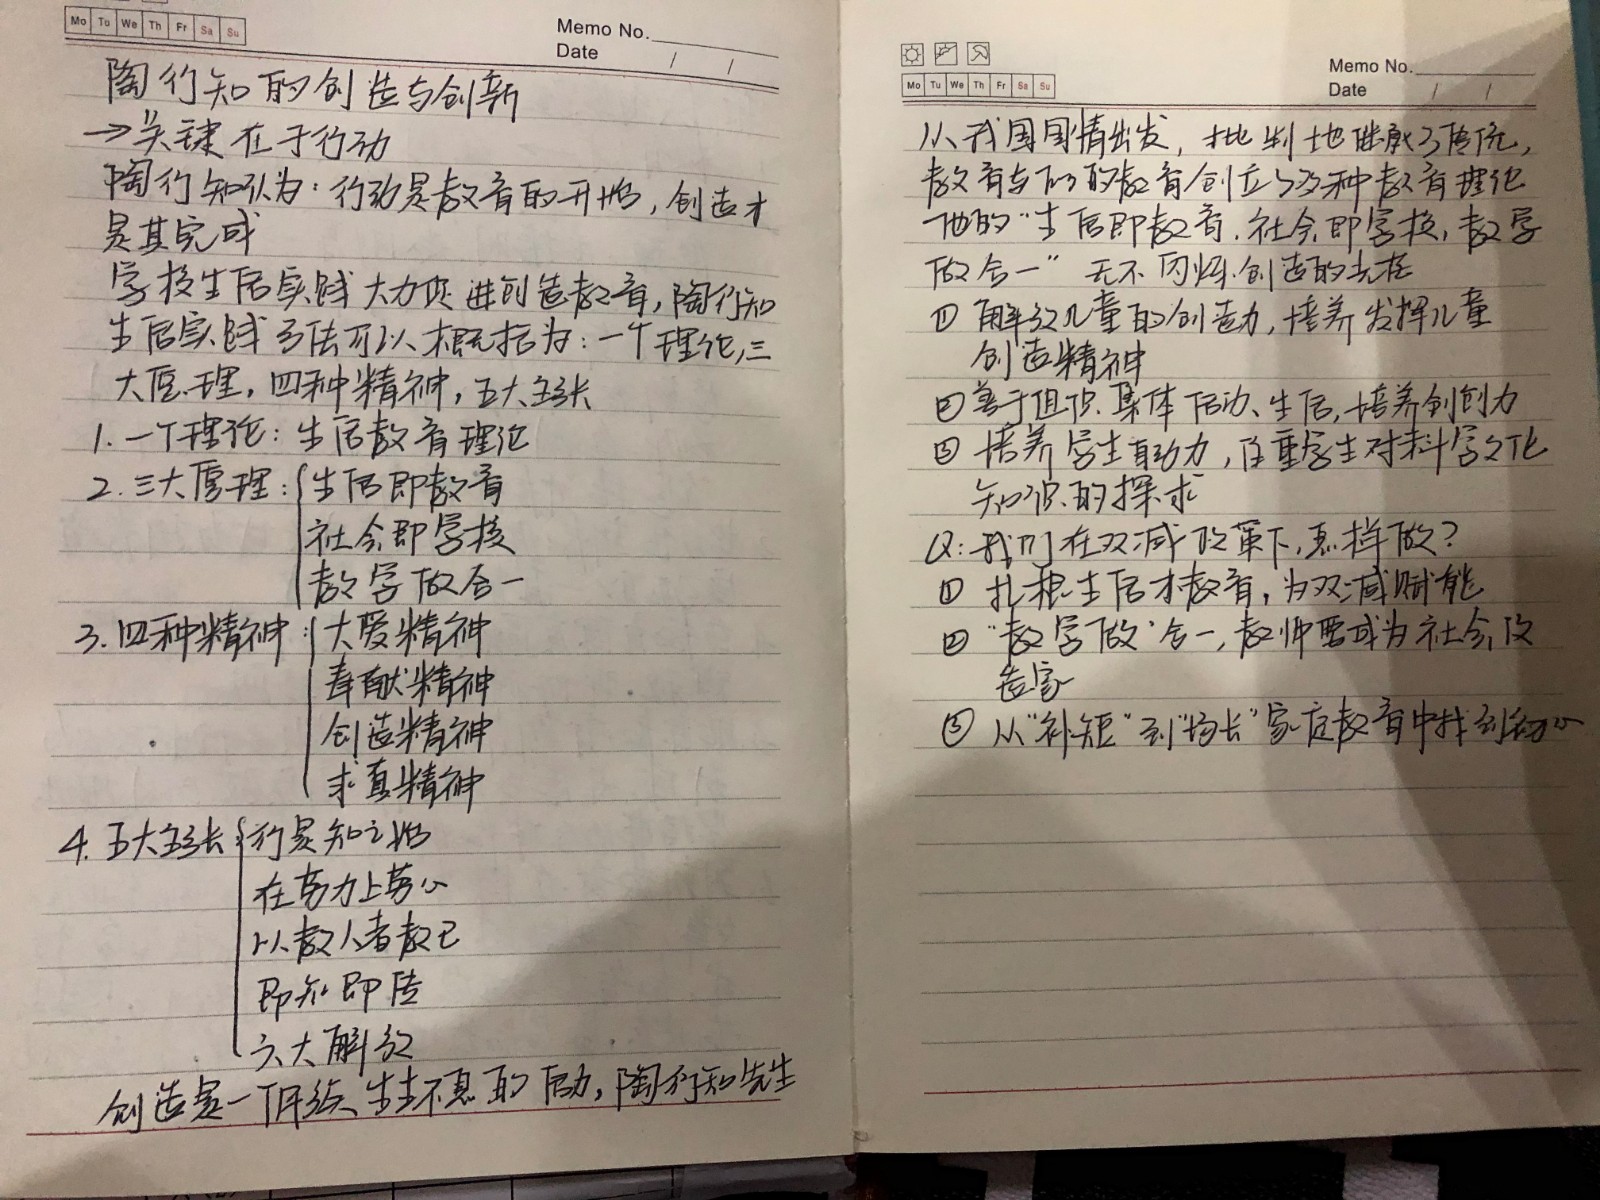 Mo Tu We Th Fr Sa Su
Memo No.
Date / /
陶行知的创造与创新
→关键在于行动
陶行知认为：行动是教育的开始，创造才
是其完成
学校生活实践大力促进创造教育，陶行知
生活实践方法可以概括为：一个理论，三
大原理，四种精神，五大主张
1. 一个理论：生活教育理论
2. 三大原理：生活即教育
社会即学校
教学做合一
3. 四种精神：大爱精神
奉献精神
创造精神
求真精神
4. 五大主张 行是知之始
在劳力上劳心
以教人者教己
即知即传
六大解放
创造是一个开给、生生不息的活动，陶行知先生
Mo Tu We Th Fr Sa Su
Memo No.
Date / /
从我国国情出发，批判地继承了传统，
教育与的教育创立了这种教育理论
他的“生活即教育、社会即学校，教学
做合一”无不闪烁创造的光芒
① 解放儿童的创造力，培养发挥儿童
创造精神
② 善于组织集体活动、生活，培养创创力
③ 培养学生自动力，注重学生对科学文化
知识的探求
Q：我们在双减政策下，怎样做？
① 扎根生活才教育，为双减赋能
② “教学做”合一，教师要成为社会改
造家
③ 从“补短”到“扬长”家庭教育中找到初心